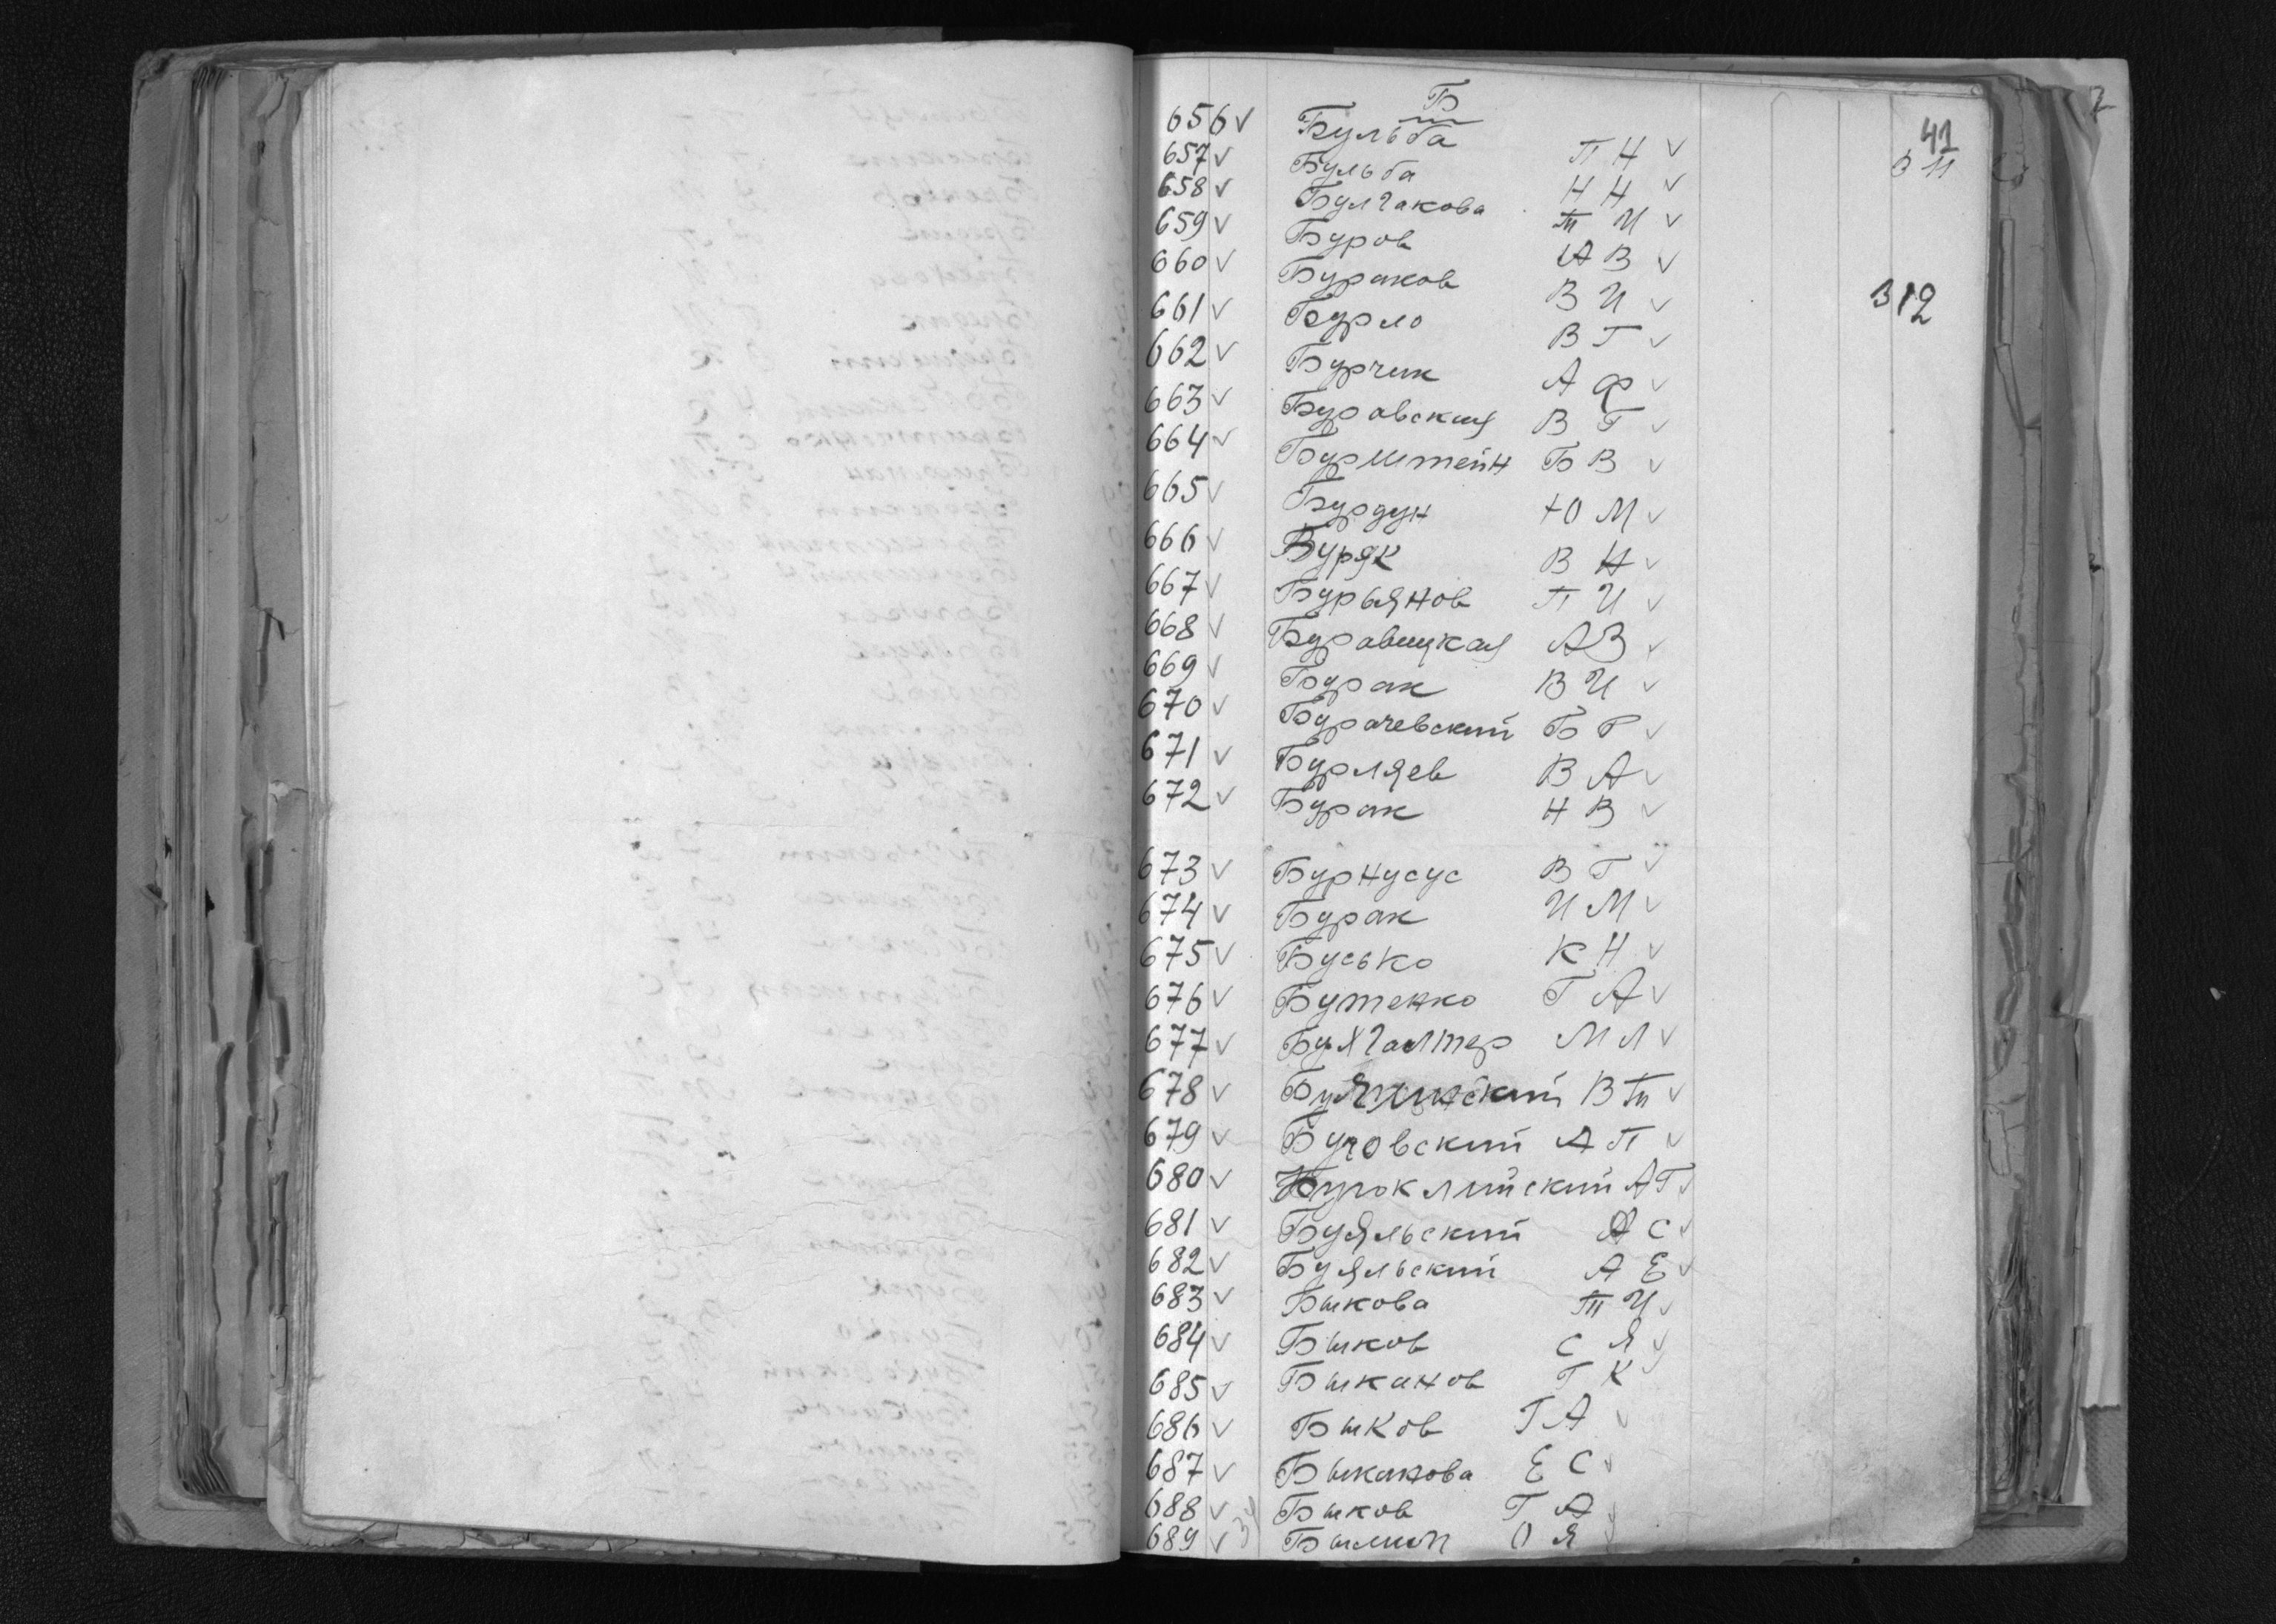 Б
41
656 v Бульба П Н v
657 v Бульба Н Н v
658 v Булгакова Т И v
659 v Буров А В v
660 v Бураков В И v
312
661 v Бурло В Г v
662 v Бурчик А Ф v
663 v Буравская В Г v
664 v Бурштейн Б В v
665 v Бурдун Ю М v
666 v Буряк В Н v
667 v Бурьянов П И v
668 v Буравицкая А В v
669 v Бурак В И v
670 v Бурачевский Б Р v
671 v Бурляев В А v
672 v Бурак Н В v
673 v Бурнусус В Г v
674 v Бурак И М v
675 v Бусько К Н v
676 v Бутенко Г А v
677 v Бухгалтер М Л v
678 v В Т v
679 v Бучовский А П v
680 v А Г v
681 v Буяльский А С v
682 v Буяльский А Е v
683 v Быкова Т И v
684 v Быков С Я v
685 v Быканов Г К v
686 v Быков Г А v
687 v Быканова Е С v
688 v Быков Г А v
689 v О Я v